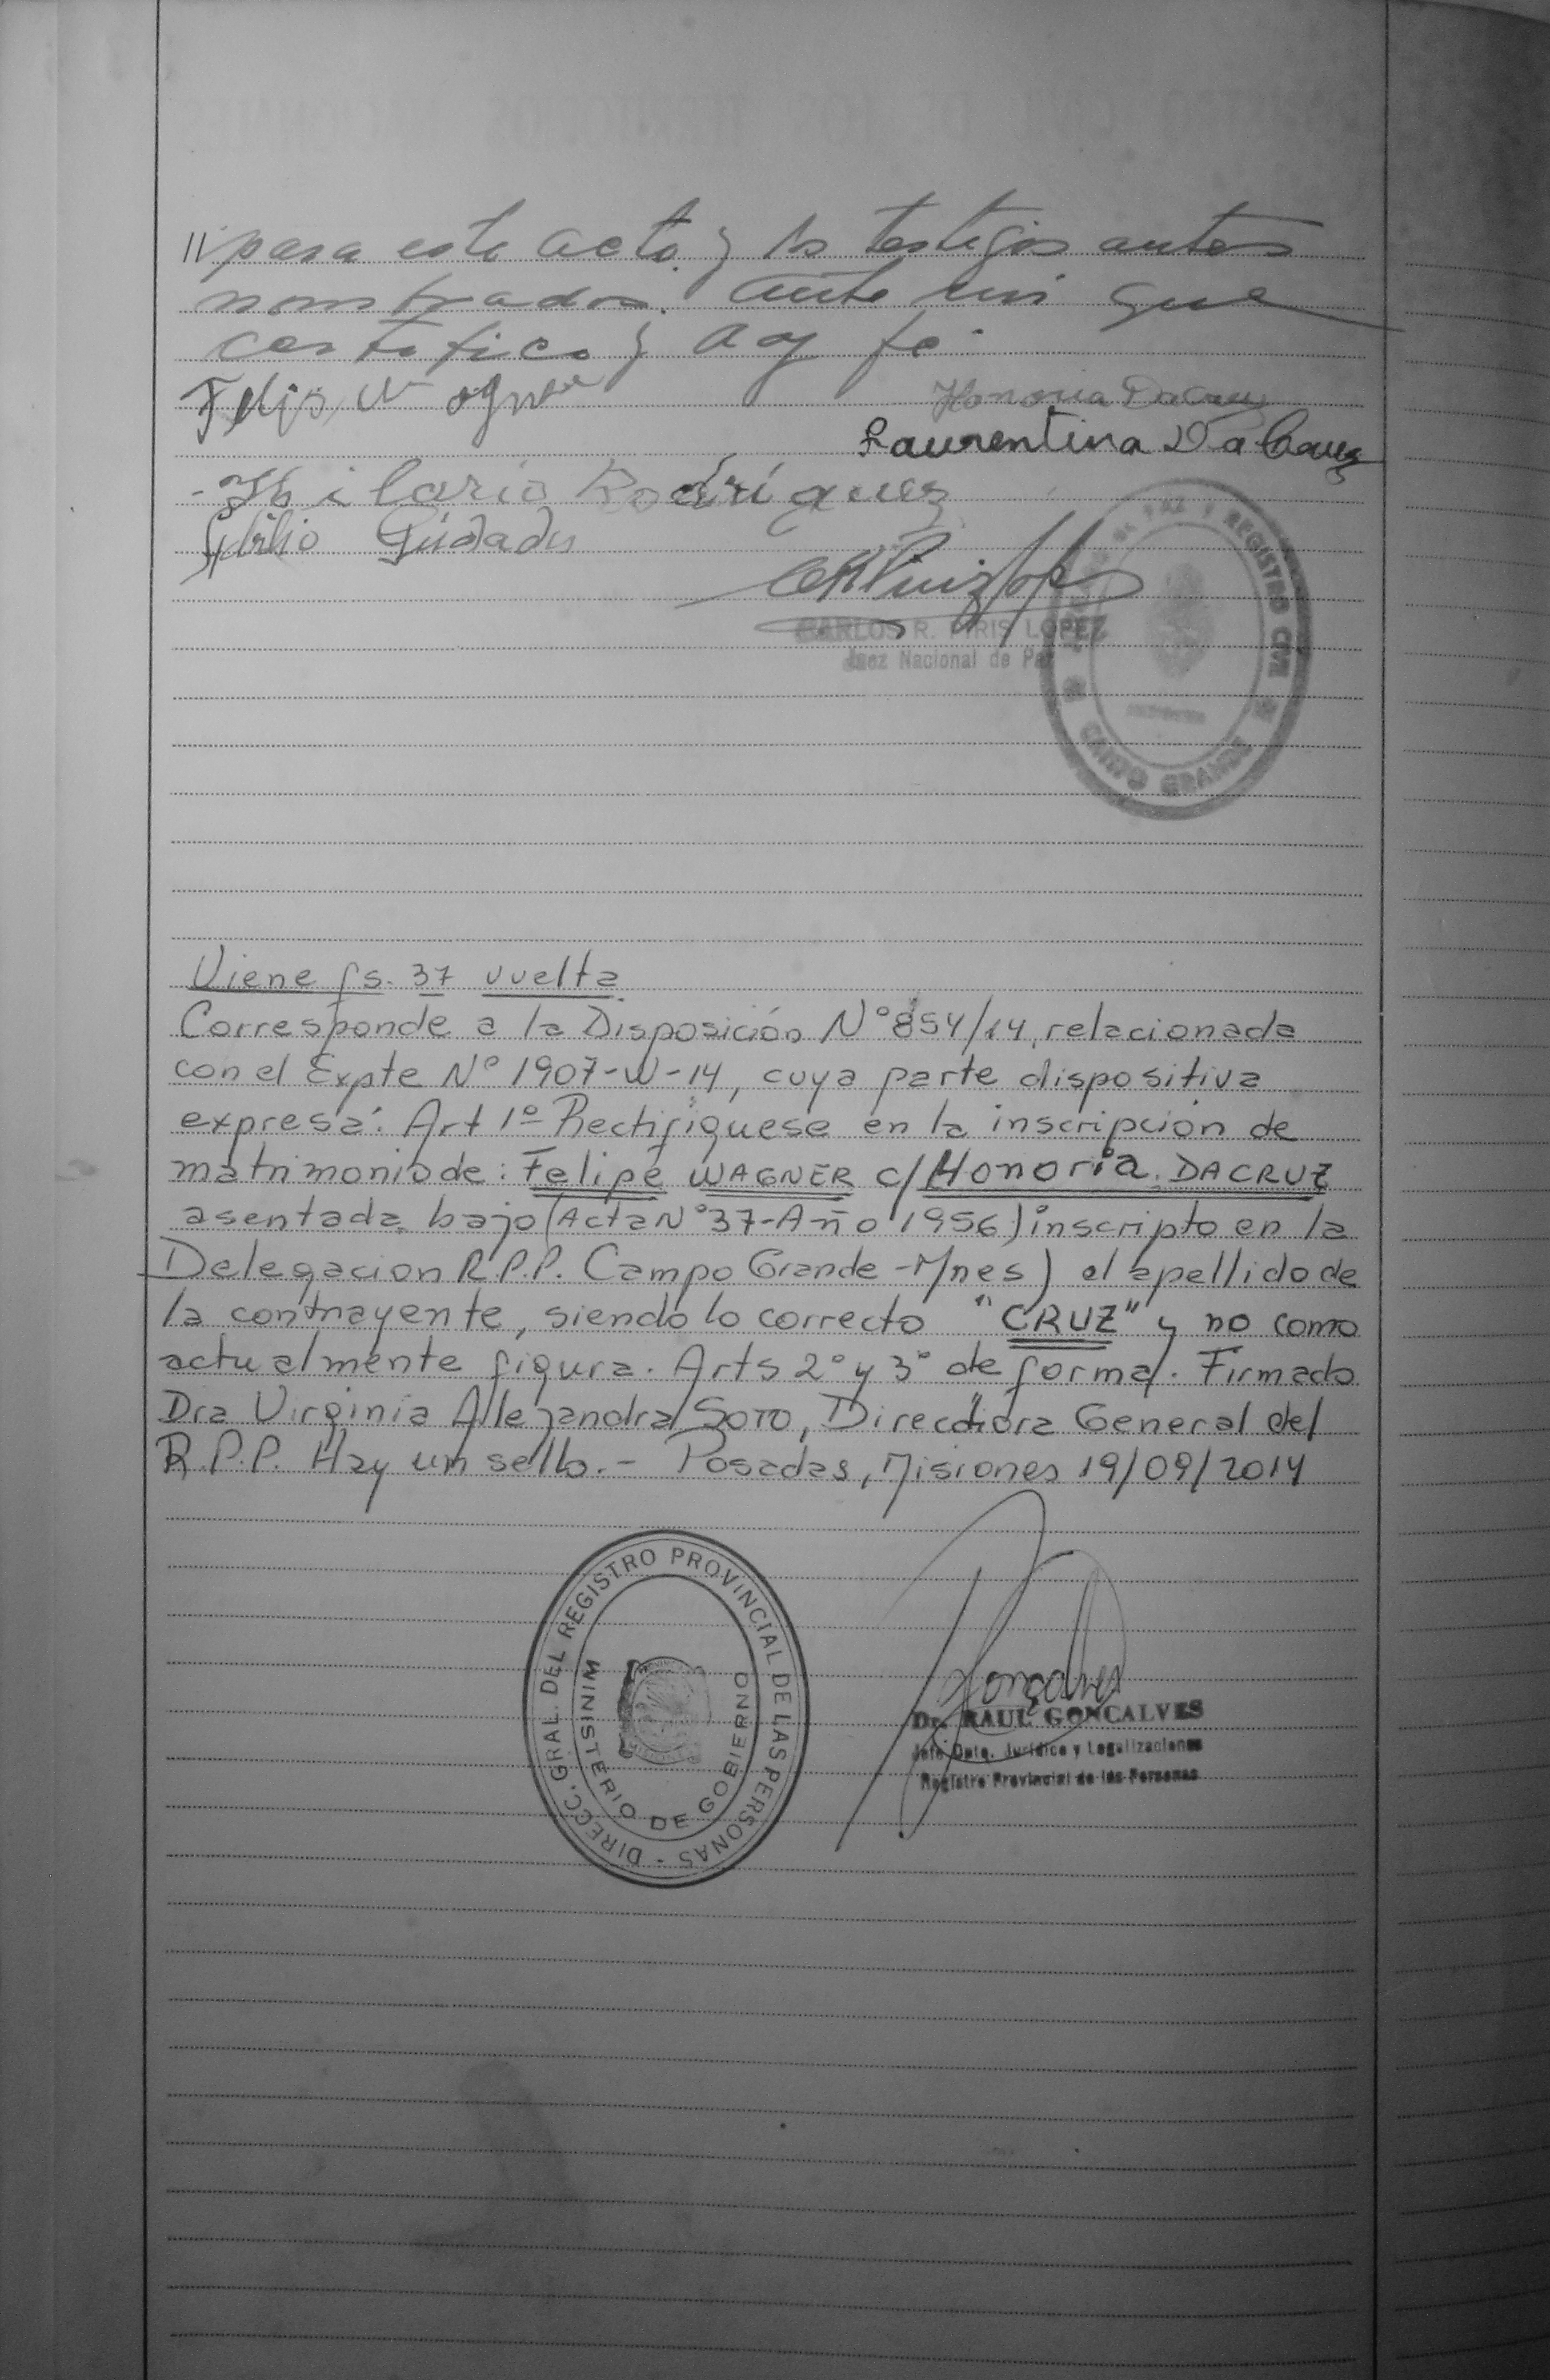 // para este acto y los testigos antes
nombrados. Ante mi que
certifico y doy fe.
Felip Wagner
Honoria Dacruz
Laurentina Da Cruz
Hilario Rodríguez
CARLOS R. PIRIS LOPEZ
Juez Nacional de Paz
PAZ Y REGISTRO CIVIL
CAMPO GRANDE
Viene fs. 37 vuelta
Corresponde a la Disposición N° 854/14, relacionada
con el Expte N° 1907-W-14, cuya parte dispositiva
expresa: Art 1º Rectifíquese en la inscripción de
matrimonio de: Felipe WAGNER c/ Honoria DACRUZ
asentada bajo (Acta N° 37-Año 1956) inscripto en la
Delegacion R.P.P. Campo Grande -Mnes) el apellido de
la contrayente, siendo lo correcto "CRUZ" y no como
actualmente figura. Arts 2° y 3° de forma. Firmado
Dra Virginia Allejandra SOTO, Directiora General del
R.P.P. Hay un sello.- Posadas, Misiones 19/09/2014
DIRECC. GRAL. DEL REGISTRO PROVINCIAL DE LAS PERSONAS -
MINISTERIO DE GOBIERNO
Goncalves
Dr. RAUL GONCALVES
Jefe Dpto. Jurídico y Legalizaciones
Registro Provincial de las Personas